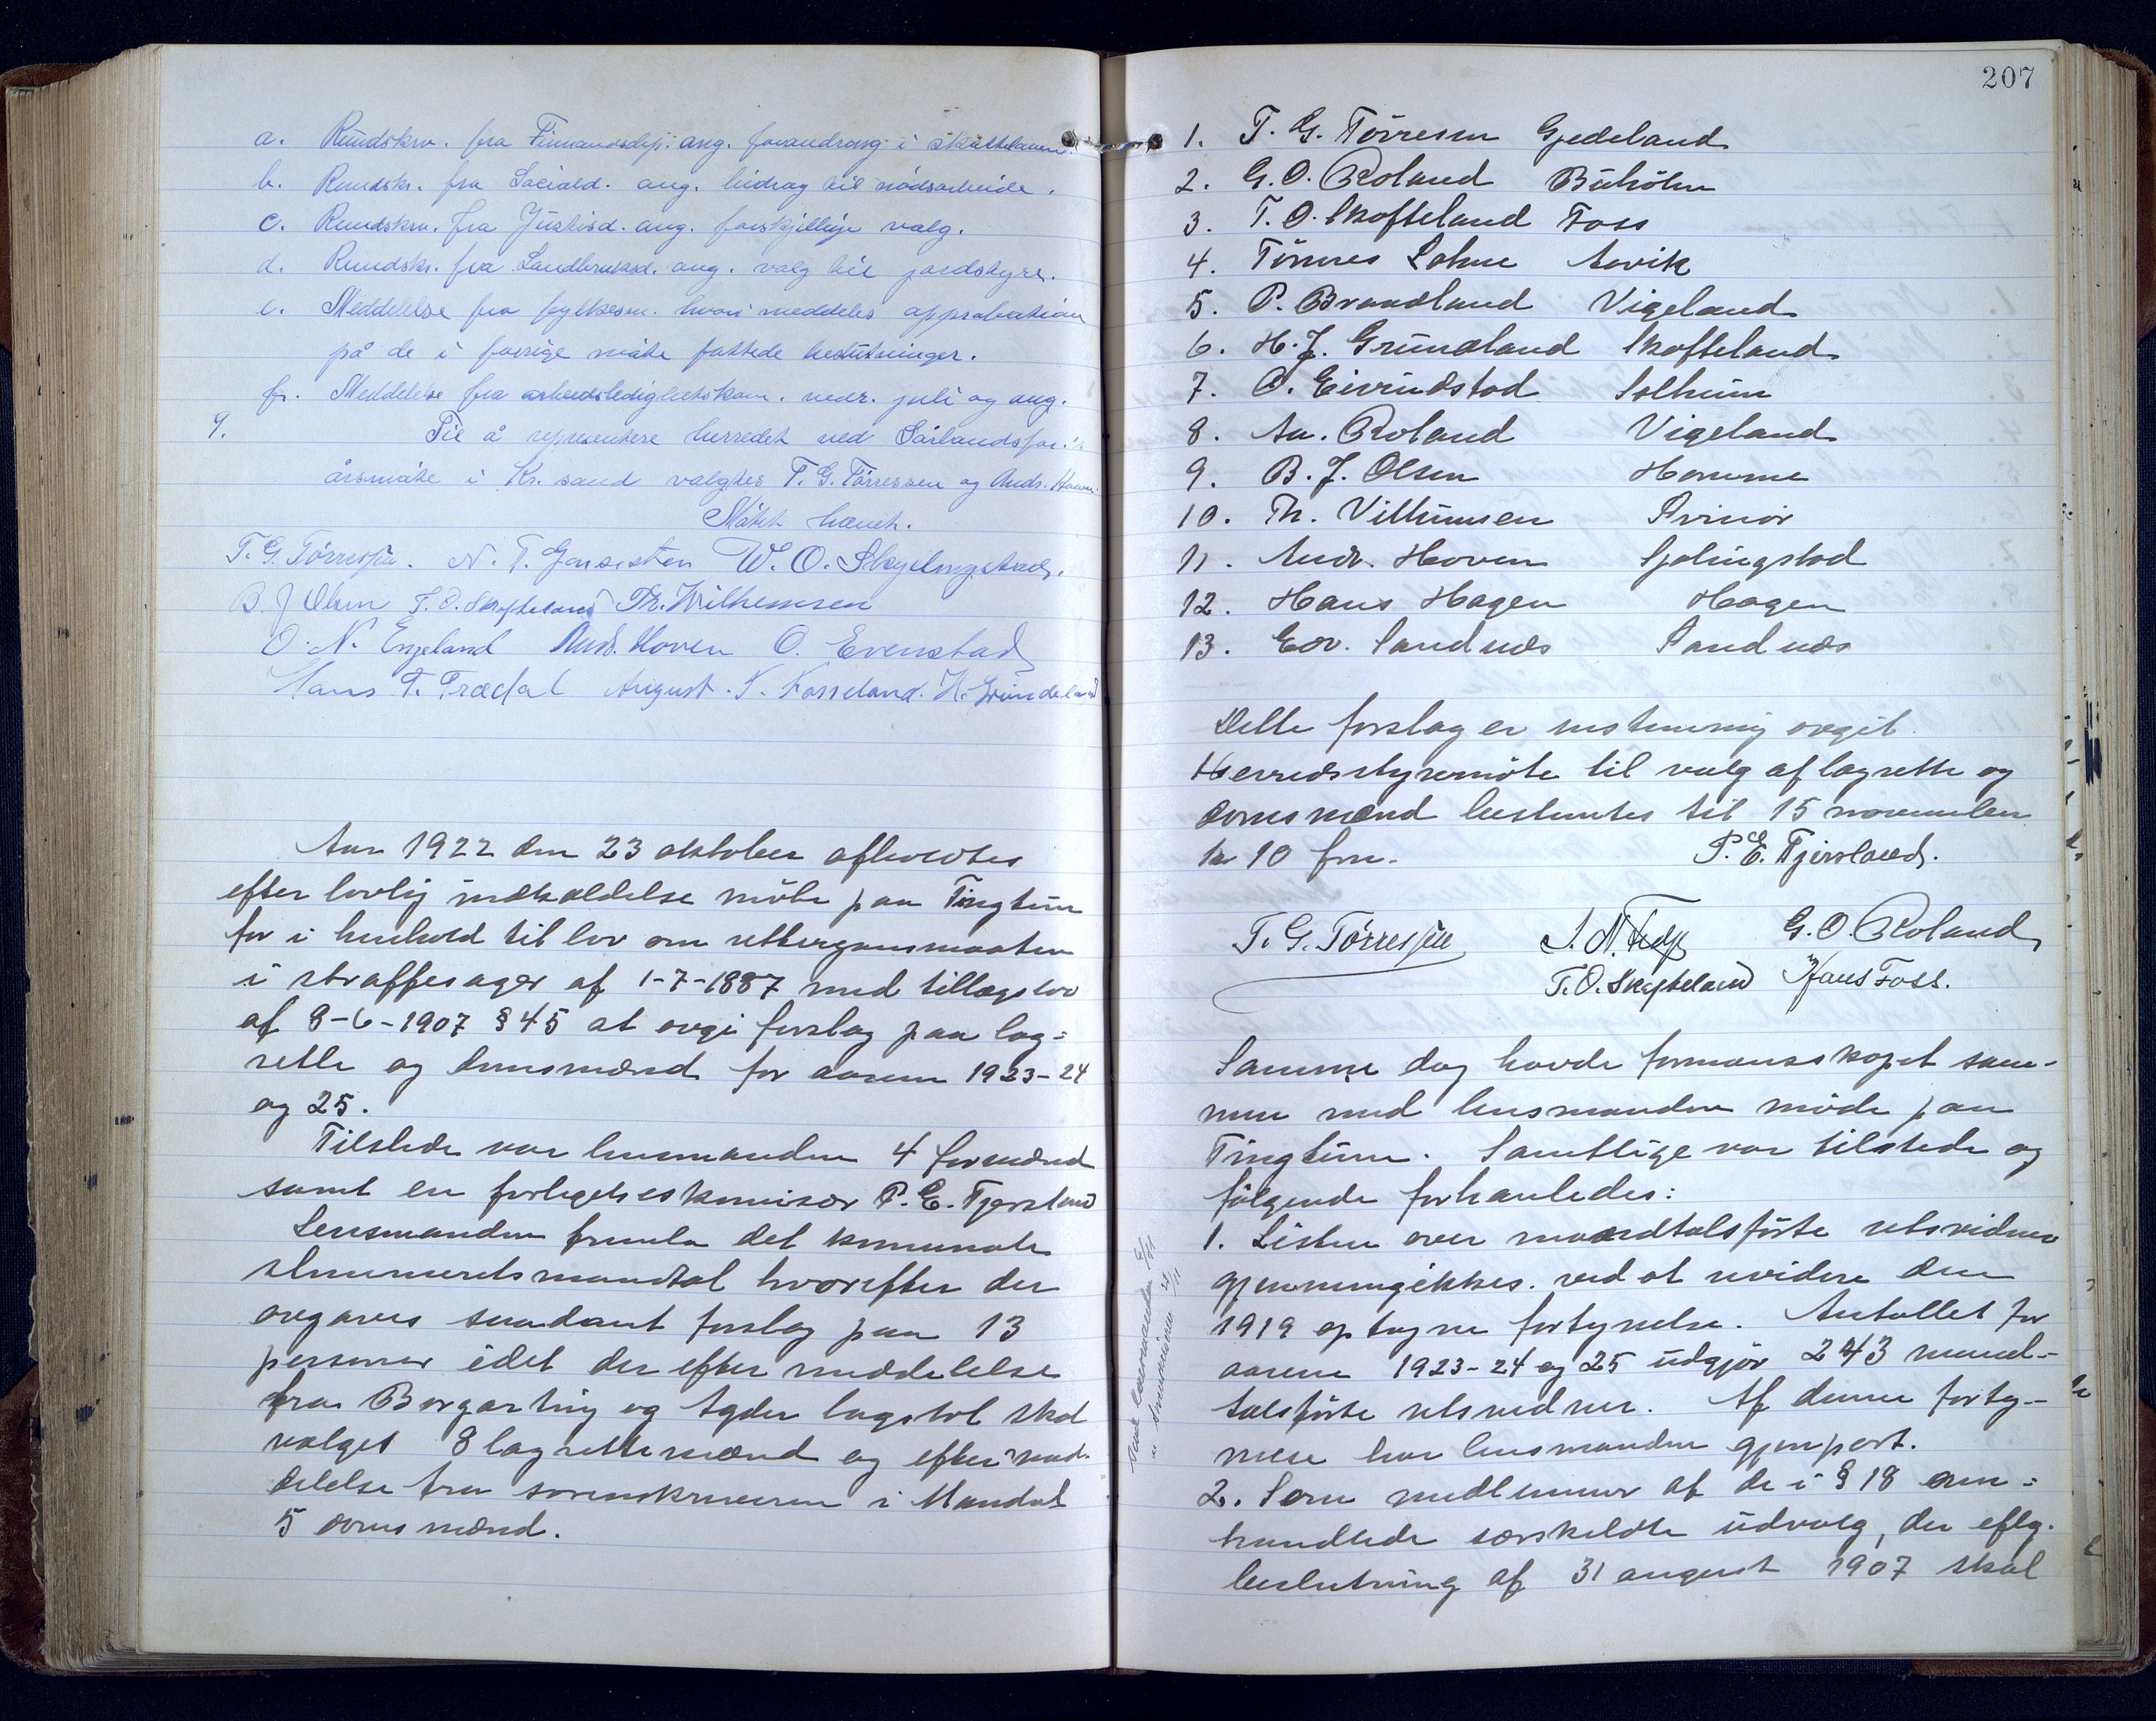 a. Rundskr. fra Finansdep. ang. forandring i skatteloven.
b. Rundskr. fra Sociald. ang. bidrag til nødsarbeide.
c. Rundskr. fra Justisd. ang. forskjellige valg.
d. Rundskr. fra Landbruksd. ang. valg til jordstyre.
e. Meddelelse fra fylkesm. hvori meddeles approbation
på de i forrige møte fattede beslutninger.
f. Meddelelse fra arbeidsledighetskom. vedr. juli og aug.
9. Til å representere herredet ved Sørlandsfor.
årsmøte i Kr. sand valgtes T. G. Tørressen og Andr. Hoven.
Møtet hævet.
T. G. Tørressen. N. T. W. O. Skjelingstad.
B. J Olsen T. O. Skofteland Th. Wilhemsen
O. N. Engeland Andr. Hoven O. Evenstad
Hans T. Trædal August. K. Fosseland. H. Grundeland
Aar 1922 den 23 oktober afholdtes
efter lovlig indkaldelse möte paa Tingtun
for i henhold til lov om rettergangsmaaten
i straffesager af 1-7-1887 med tillægslov
af 8-6-1907 § 45 at avgi forslag paa lag=
rette og domsmænd for aarene 1923-24
og 25.
Tilstede var lensmanden 4 formænd
samt en forligelseskomisær P. E. Tjersland
Lensmanden fremla det komunale
stemmeretsmandtal hvorefter der
avgaves saadant forslag paa 13
personer idet der efter meddelelse
fra Borgarting og Agder lagstol skal
vælges 8 lagrettemænd og efter med-
delelse fra sorenskriveren i Mandal
5 domsmænd.
207
1. T. G. Törresen Gjedeland
2. G. O. Roland Buholm
3. T. O. Skofteland Foss
4. Tönnes Lohne Aavik
5. P. Brandland Vigeland
6. H. J. Grundland Skofteland
7. O. Eivindstad Solheim
8. An. Roland Vigeland
9. B. J. Olsen Homme
10. Th. Villumsen Svinör
11. Andr. Hoven Sjølingstad
12. Hans Hagen Hagen
13. Edv. Sandnæs Sandnæs
Dette forslag er enstemmig avgit.
Herredsstyremöte til valg af lagrette og
domsmænd bestemtes til 15 november
kl 10 fm. P. E. Tjersland.
T. G. Tørressen G. O. Roland
T. O. Skofteland Hans Foss.
Samme dag havde formandskapet sam-
men med lensmanden möde paa
Tingtun. Samtlige var tilstede og
fölgende forhanledes:
1. Listen over mandtalsförte retsvidner
gjennemgikkes ved at revidere den
1919 optagne fortegnelse. Antallet for
aarene 1923-24 og 25 udgjör 243 mand-
talsförte retsvidner. Af denne forteg-
nelse har lensmanden gjenpart.
2. Som medlemmer af de i § 18 om=
handlede særskildte udvalg, der eftg.
beslutning af 31 august 1907 skal